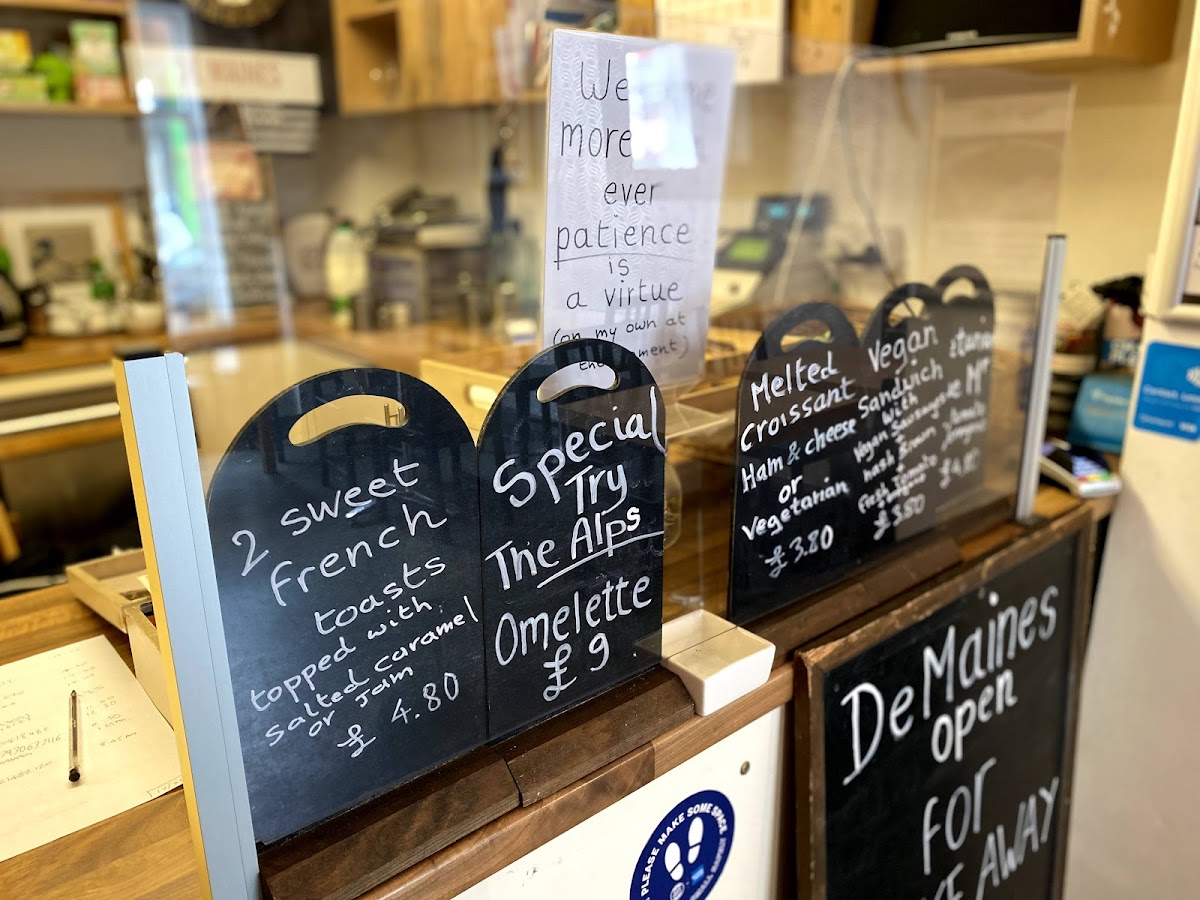 MAINES
more
ever
patience
is
a virtue
(on my own at
2 sweet
french
toasts
topped with
salted caramel
or Jam
£ 4.80
Special
Try
The Alps
Omelette
£ 9
Melted
Croissant
Ham & cheese
or
Vegetarian
£3.80
Vegan
Sandwich
with
Vegan Sausages
hash Brown
Fresh Tomato
£3.80
DeMaines
open
FOR
AWAY
PLEASE MAKE SOME SPACE